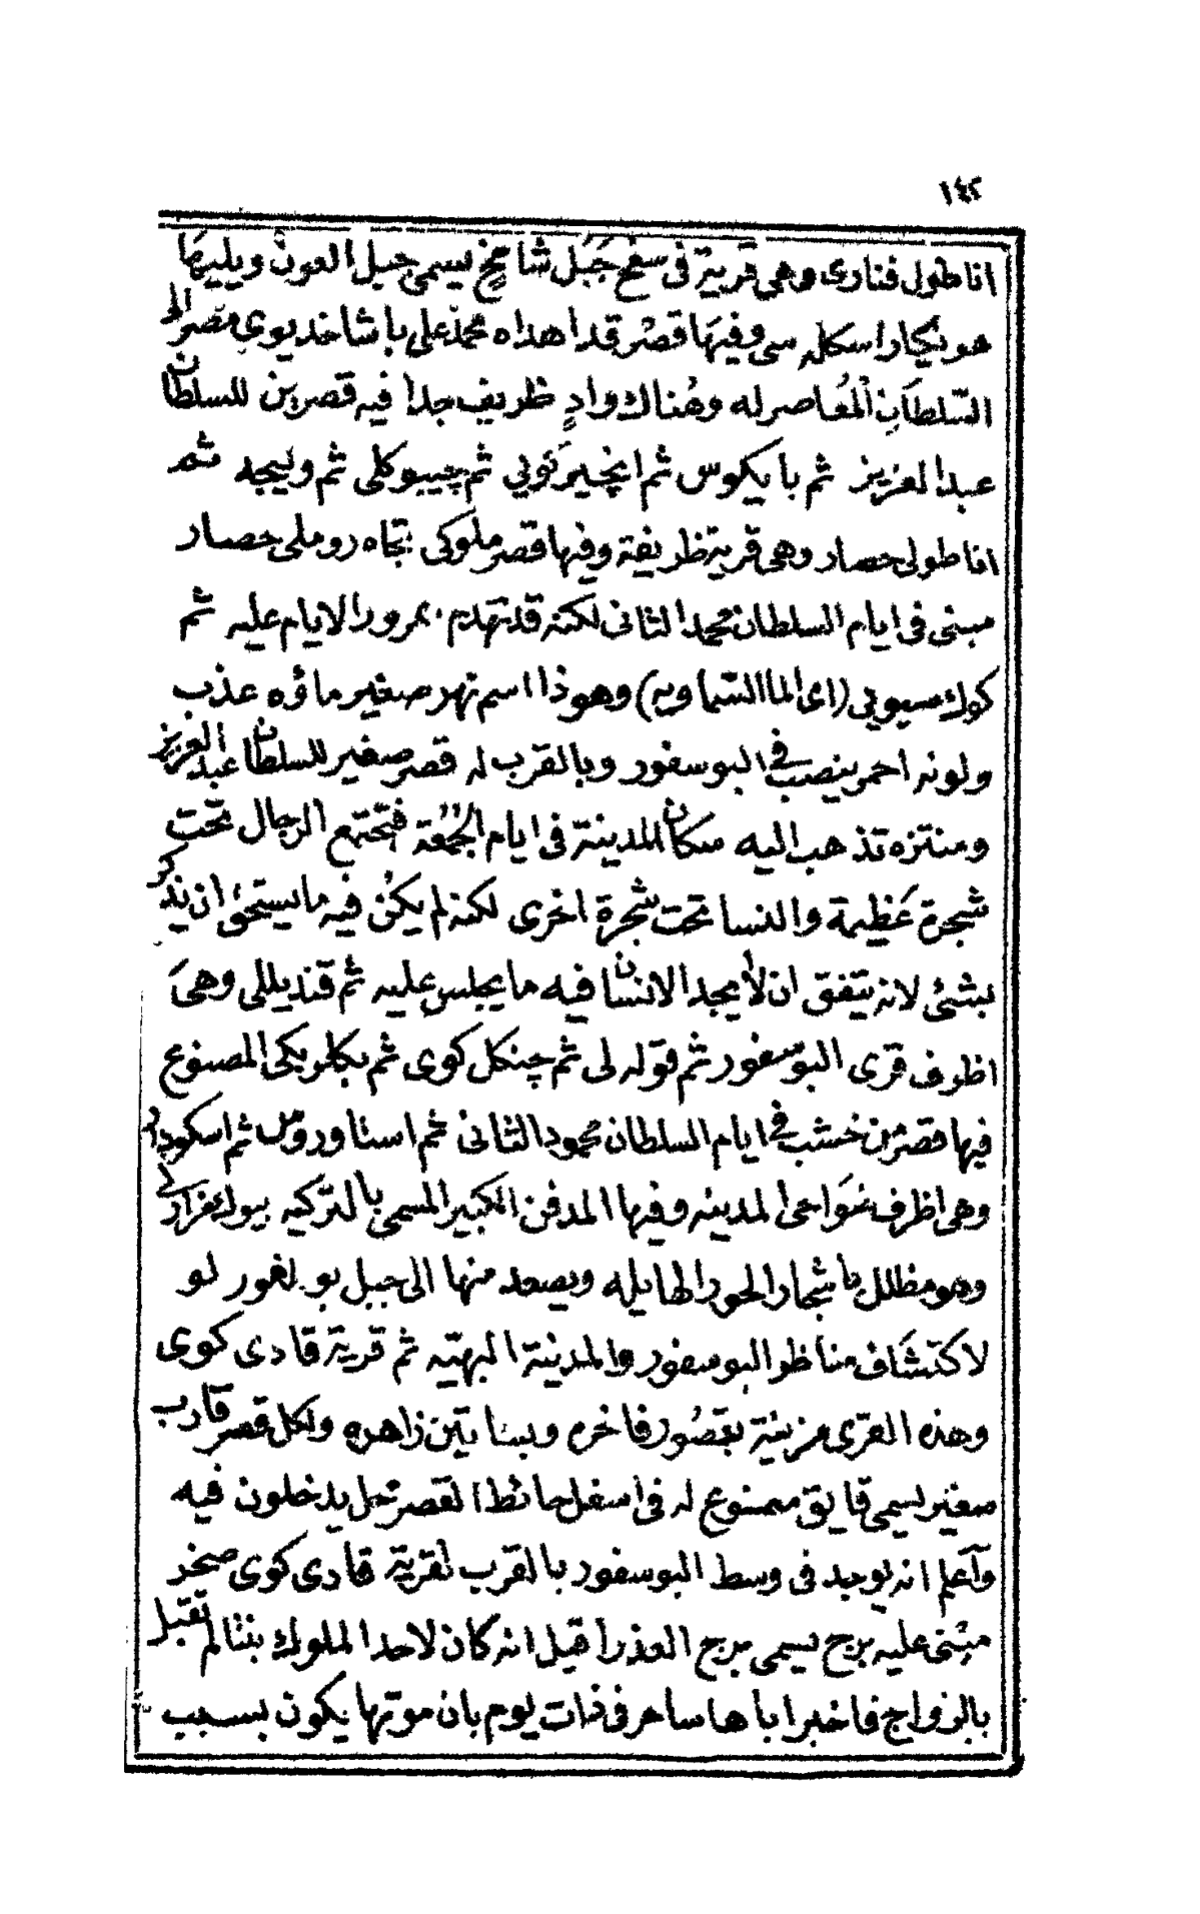 ١٤٢
اناطولى فنارى وهى قرية فى سفح جَبَل شامخٍ يسمى جبل العون ويليها
هونكار اسكله سى وفيهَا قصْر قد اهداه محمّد على باشا خديوى مصر الى
السّلطَانِ الْمُعاصر له وهُناك وادٍ ظريف جدا فيه قصرين للسلطان
عبد العزيز ثم بايكوس ثم اينچير كوبي ثم چيبوكلى ثم وليجه ثم
اناطولى حصار وهى قرية ظريفة وفيها قصر ملوكى تجاه روملى حصار
مبنى فى ايام السلطان محمد الثانى لكنه قد تهدم بمرور الايام عليه ثم
كوك سيوبي (اى الما السّماويه) وهو ذا اسم نهر صغير ماؤه عذب
ولونه احمر ينصب فى البوسفور وبالقرب له قصر صغير للسلطان عبد العزيز
ومنتزه تذهب اليه سكان المدينة فى ايام الجمعة فتجتمع الرجال تحت
شجرة عَظيمة والنسا تحت شجرة اخرى لكنه لم يكن فيه ما يستحئ ان يذكر
بشئ لانه يتفق ان لا يجد الانسان فيه ما يجلس عليه ثم قنديللى وهىَ
اظرف قرى البوسفور ثم قوله لى ثم چنكل كوى ثم بكلربكى المصنوع
فيها قصر من خشب فى ايام السلطان محمود الثانى ثم استاوروس ثم اسكودار
وهى اظرف نَوَاحى المدينه وفيها المدفن الكبير المسمى بالتركيه بيوك مزارلك
وهو مظلل باشجار الحور الهايله ويصعد منها الى جبل بولغورلو
لاكتشَاف مناظر البوسفور والمدينة البهيّه ثم قرية قادى كوى
وهذه القرى مزينة بقصُور فاخره وبساتين زاهره ولكل قصر قارب
صغير يسمى قايق مصنوع له فى اسفل حائط القصر محل يدخلون فيه
وآعلم انه يوجد فى وسط البوسفور بالقرب لقرية قادى كوى صخر
مبْنى عليه برج يسمى برج العذرا قيل انه كان لاحد الملوك بنتا لم تقبل
بالزواج فاخبر اباها ساحر فى ذات يوم بان موتها يكون بسبب